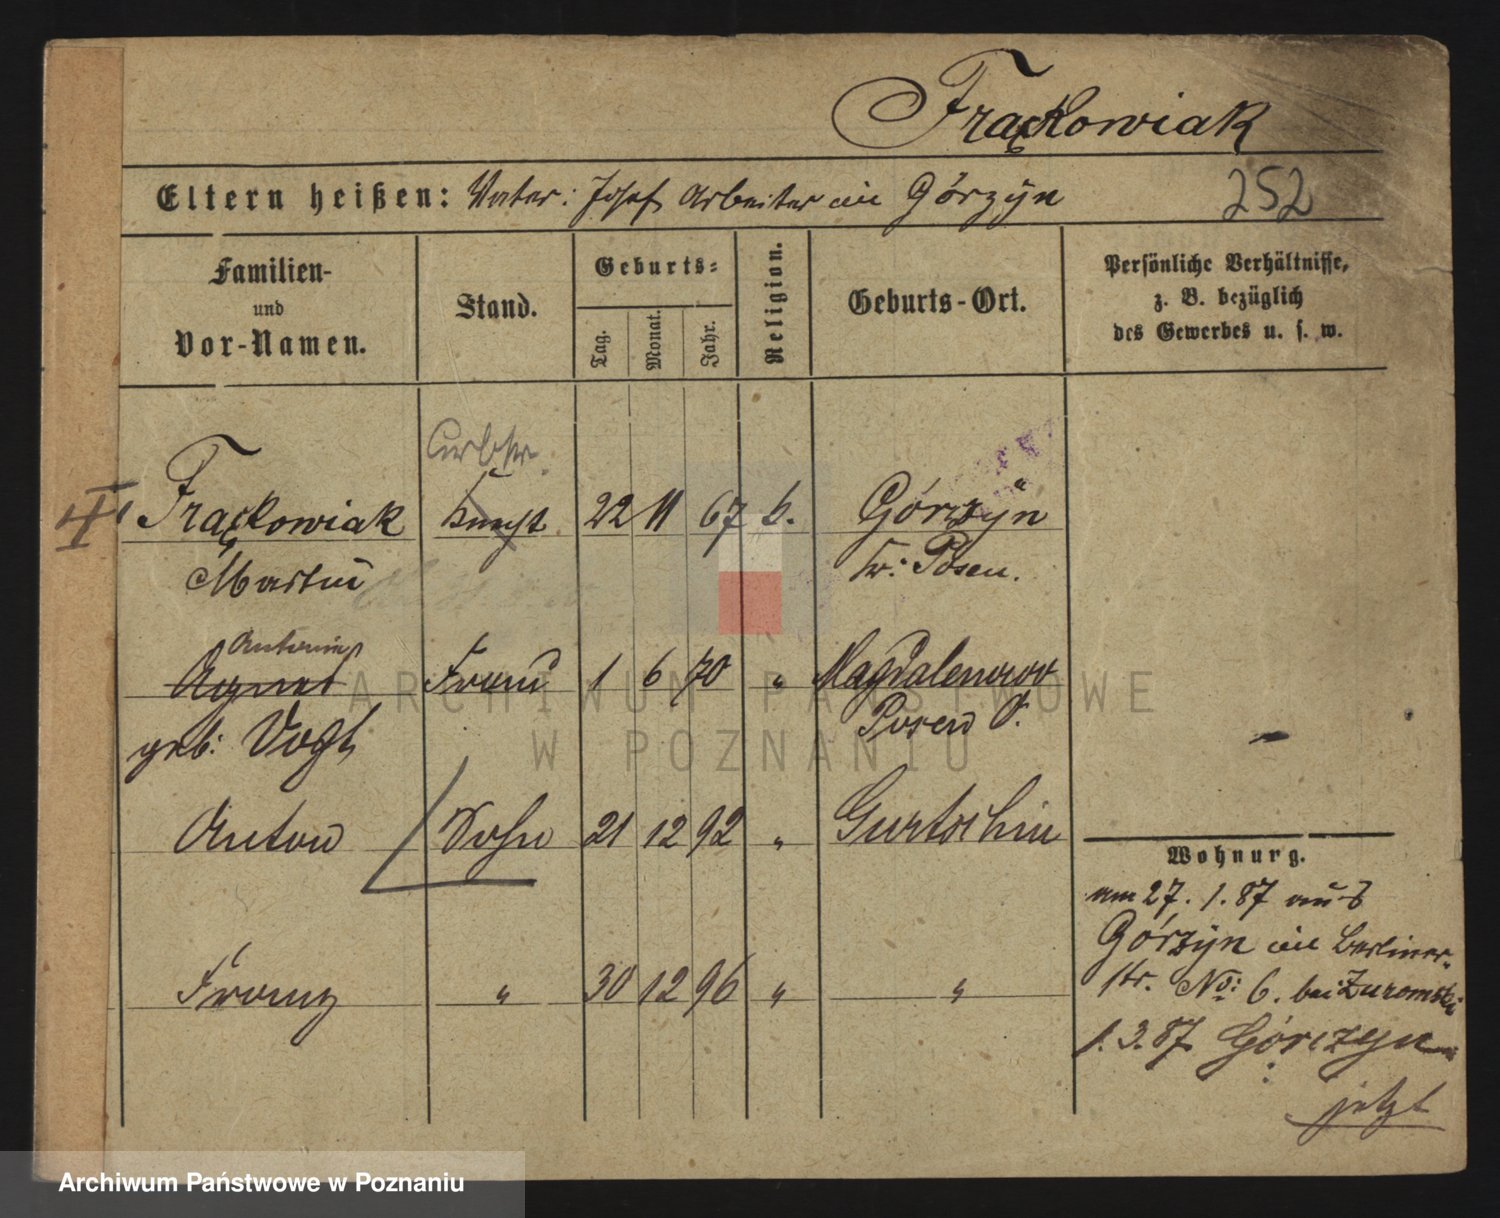 Frąckowiak
Eltern heißen: Vater: Josef Arbeiter in Górzyn
252
Familien-
und
Vor-Namen.
Stand.
Geburts-
Tag.
Monat.
Jahr.
Religion.
Geburts-Ort.
Persönliche Verhältnisse,
z. B. bezüglich
des Gewerbes u. s. w.
Arbtr.
II Frąckowiak Knecht 22 11 67 k. Górzyn
Martin Kr: Posen.
Antonie
Agnes Frau 1 6 70 " Magdalenow
geb: Vogt Posen O.
Anton Sohn 21 12 92 " Gurtschin
Wohnung.
am 27. 1. 87 aus
Górzyn in Berliner-
Franz " 30 12 96 " "
str. No: 6. bei Zuromski
1.3.87 Górczyn
jetzt
ARCHIWUM PAŃSTWOWE
W POZNANIU
Archiwum Państwowe w Poznaniu